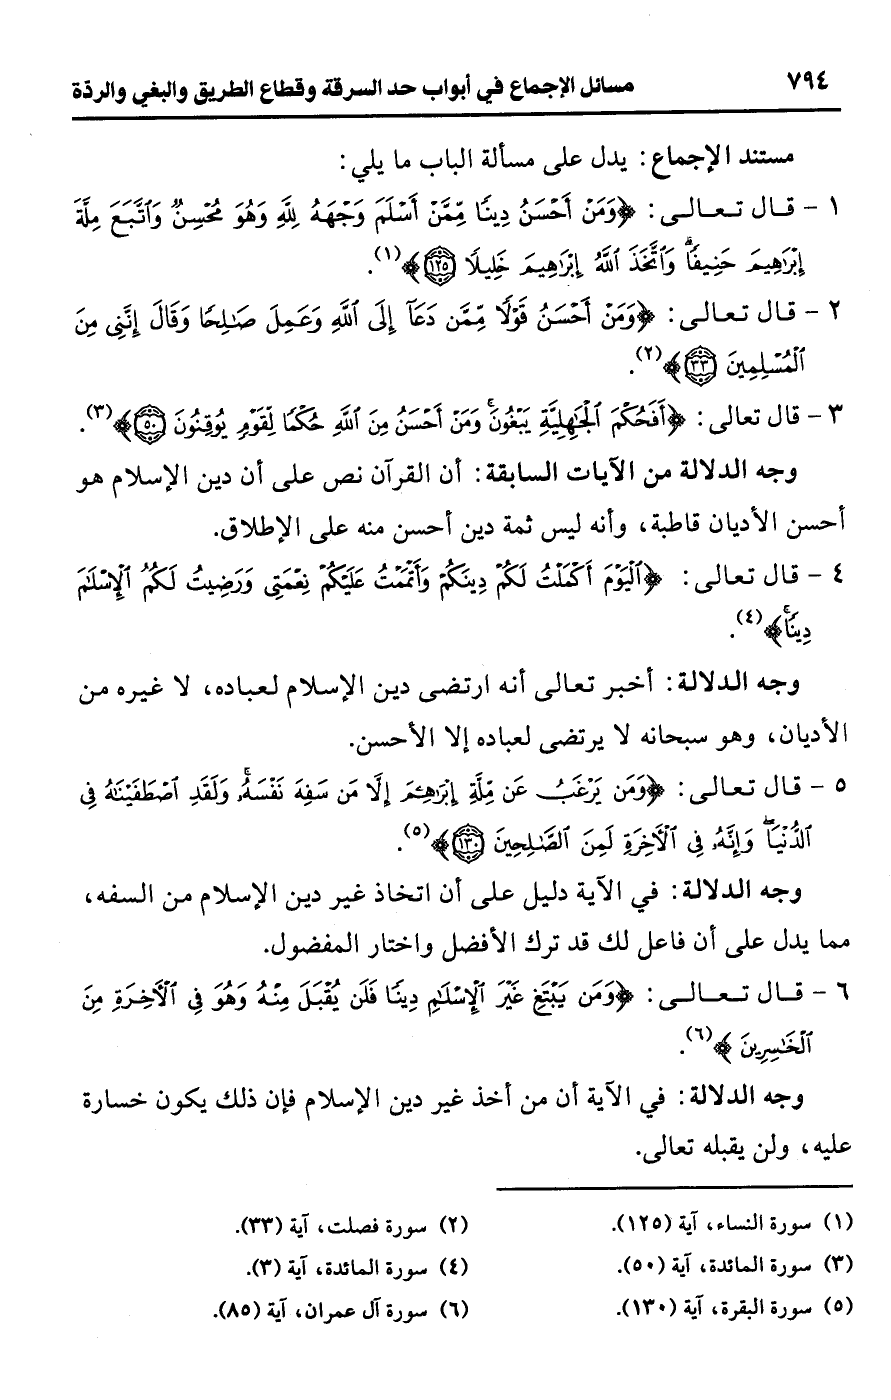 ٧٩٤ مسائل الإجماع في أبواب حد السرقة وقطاع الطريق والبغي والردّة
مستند الإجماع: يدل على مسألة الباب ما يلي:
١ - قال تعالى: ﴿وَمَنْ أَحْسَنُ دِينًا مِّمَّنْ أَسْلَمَ وَجْهَهُ لِلَّهِ وَهُوَ مُحْسِنٌ وَاتَّبَعَ مِلَّةَ
إِبْرَاهِيمَ حَنِيفًا ۗ وَاتَّخَذَ اللَّهُ إِبْرَاهِيمَ خَلِيلًا ١٢٥﴾(١).
٢ - قال تعالى: ﴿وَمَنْ أَحْسَنُ قَوْلًا مِّمَّن دَعَا إِلَى اللَّهِ وَعَمِلَ صَالِحًا وَقَالَ إِنَّنِي مِنَ
الْمُسْلِمِينَ ٣٣﴾(٢).
٣ - قال تعالى: ﴿أَفَحُكْمَ الْجَاهِلِيَّةِ يَبْغُونَ ۚ وَمَنْ أَحْسَنُ مِنَ اللَّهِ حُكْمًا لِّقَوْمٍ يُوقِنُونَ ٥٠﴾(٣).
وجه الدلالة من الآيات السابقة: أن القرآن نص على أن دين الإسلام هو
أحسن الأديان قاطبة، وأنه ليس ثمة دين أحسن منه على الإطلاق.
٤ - قال تعالى: ﴿الْيَوْمَ أَكْمَلْتُ لَكُمْ دِينَكُمْ وَأَتْمَمْتُ عَلَيْكُمْ نِعْمَتِي وَرَضِيتُ لَكُمُ الْإِسْلَامَ
دِينًا ۚ﴾(٤).
وجه الدلالة: أخبر تعالى أنه ارتضى دين الإسلام لعباده، لا غيره من
الأديان، وهو سبحانه لا يرتضى لعباده إلا الأحسن.
٥ - قال تعالى: ﴿وَمَن يَرْغَبُ عَن مِّلَّةِ إِبْرَاهِيمَ إِلَّا مَن سَفِهَ نَفْسَهُ ۚ وَلَقَدِ اصْطَفَيْنَاهُ فِي
الدُّنْيَا ۖ وَإِنَّهُ فِي الْآخِرَةِ لَمِنَ الصَّالِحِينَ ١٣٠﴾(٥).
وجه الدلالة: في الآية دليل على أن اتخاذ غير دين الإسلام من السفه،
مما يدل على أن فاعل لك قد ترك الأفضل واختار المفضول.
٦ - قال تعالى: ﴿وَمَن يَبْتَغِ غَيْرَ الْإِسْلَامِ دِينًا فَلَن يُقْبَلَ مِنْهُ وَهُوَ فِي الْآخِرَةِ مِنَ
الْخَاسِرِينَ﴾(٦).
وجه الدلالة: في الآية أن من أخذ غير دين الإسلام فإن ذلك يكون خسارة
عليه، ولن يقبله تعالى.
(١) سورة النساء، آية (١٢٥). (٢) سورة فصلت، آية (٣٣).
(٣) سورة المائدة، آية (٥٠). (٤) سورة المائدة، آية (٣).
(٥) سورة البقرة، آية (١٣٠). (٦) سورة آل عمران، آية (٨٥).